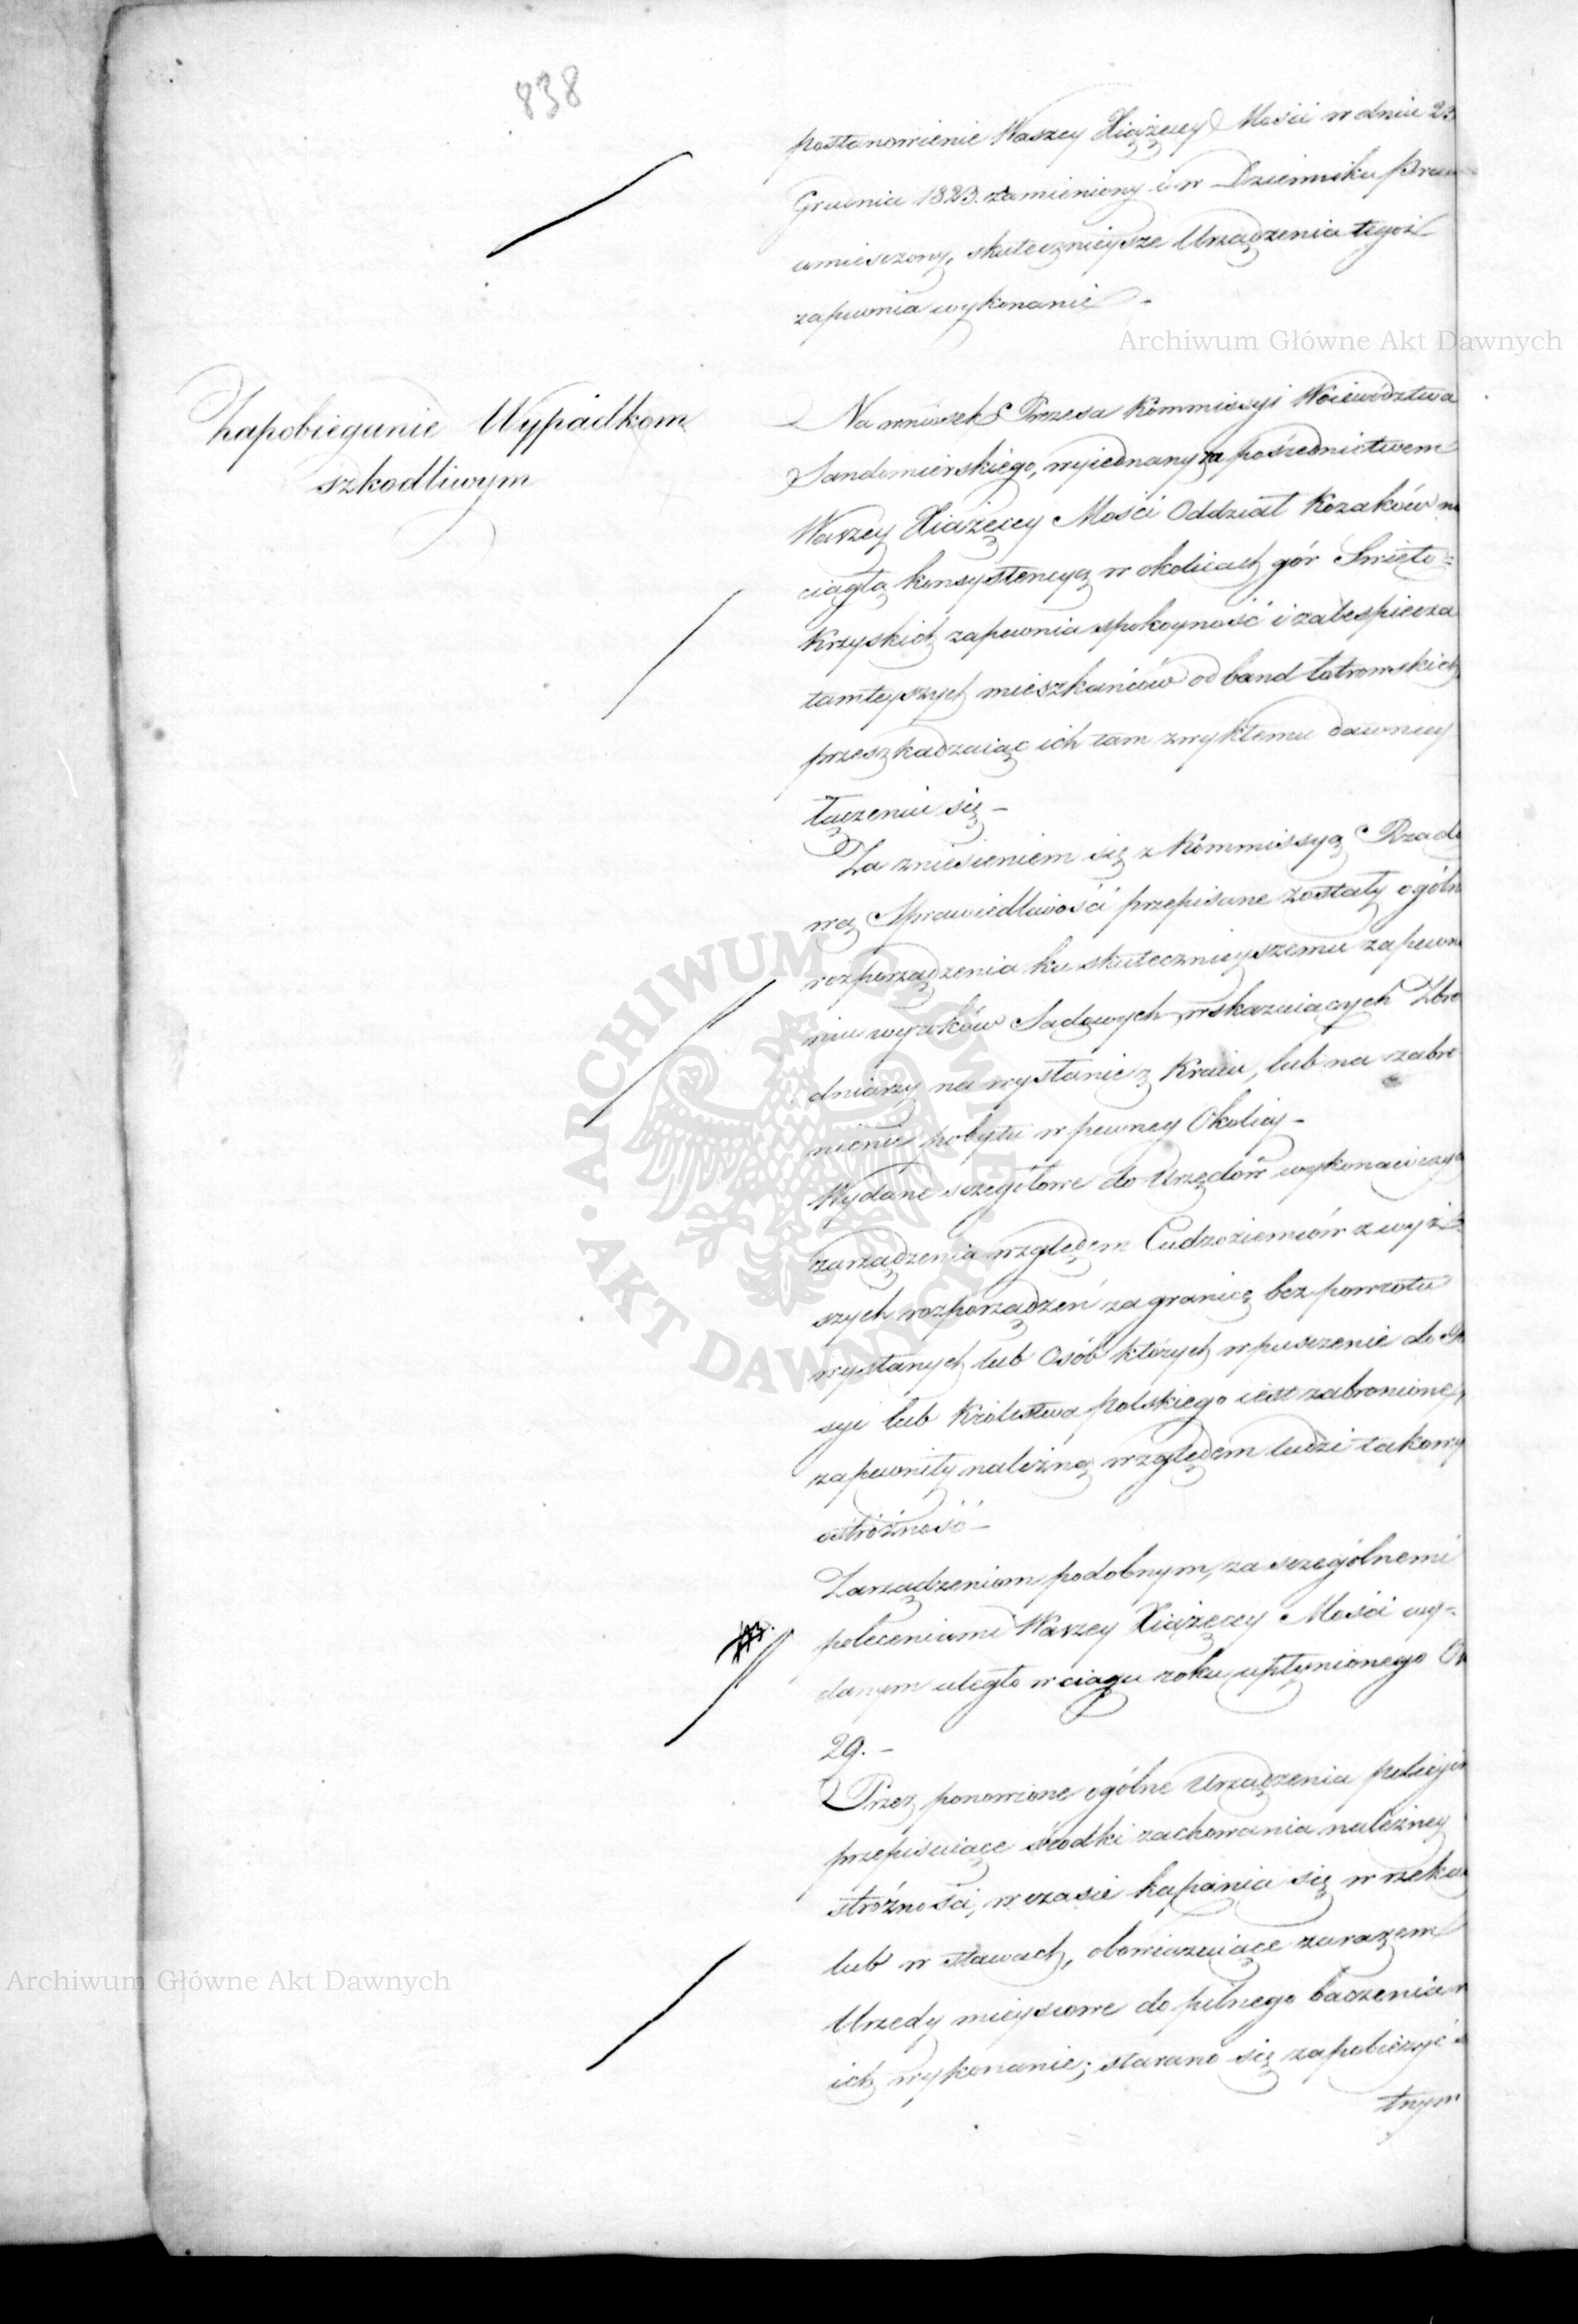 838
postanowienie Waszey Xiążęcey Mości w dniu 23
Grudnia 1823. zamieniony i w Dzienniku Praw
umiesczony, skutecznieysze Urządzenia tegoż
zapewnia wykonanie -
Archiwum Główne Akt Dawnych
Zapobieganie Wypadkom
szkodliwym
Na wniosek Prezesa Kommissyi Woiewództwa
Sandomierskiego, wyiednany za pośrednictwem
Waszey Xiążęcey Mości Oddział Kozaków na
ciągłą konsystencyą w okolicach gór Święto=
Krzyskich zapewnia spokoyność i zabespiecza
tamteyszych mieszkańców od band łotrowskich
przeszkadzaiąc ich tam zwykłemu dawniey
łączeniu się -
Za zniesieniem się z Kommissyą Rządo
wą Sprawiedliwości przepisane zostały ogóln
rozporządzenia ku skutecznieyszemu zapewn
niu wyroków Sądowych wskazuiących Zbro
dniarzy na wysłanie z Kraiu, lub na zabro
nienie pobytu w pewney Okolicy -
Wydane sczegółowe do Urzędów wykonawczyc
zarządzenia względem Cudzoziemców z wyż=
szych rozporządzeń za granicę bez powrotu
wysłanych lub Osób których wpusczenie do
syi lub Królestwa Polskiego iest zabronione,
zapewniły należną względem ludzi takowy
ostróżność -
Zarządzeniom podobnym, za sczególnemi
poleceniami Waszey Xiążęcey Mości wy=
danym uległo w ciągu roku upłynionego Os
29. -
Przez ponowione ogólne Urządzenia policyin
przepisuiące środki zachowania należney
stróżności, w czasie kąpania się w rzeka
lub w stawach, obowiązuiące zarazem
Urzędy mieyscowe do pilnego baczenia n
ich wykonanie; starano się zapobieżyć
tnym
Archiwum Główne Akt Dawnych
ARCHIWUM GŁÓWNE
AKT DAWNYCH